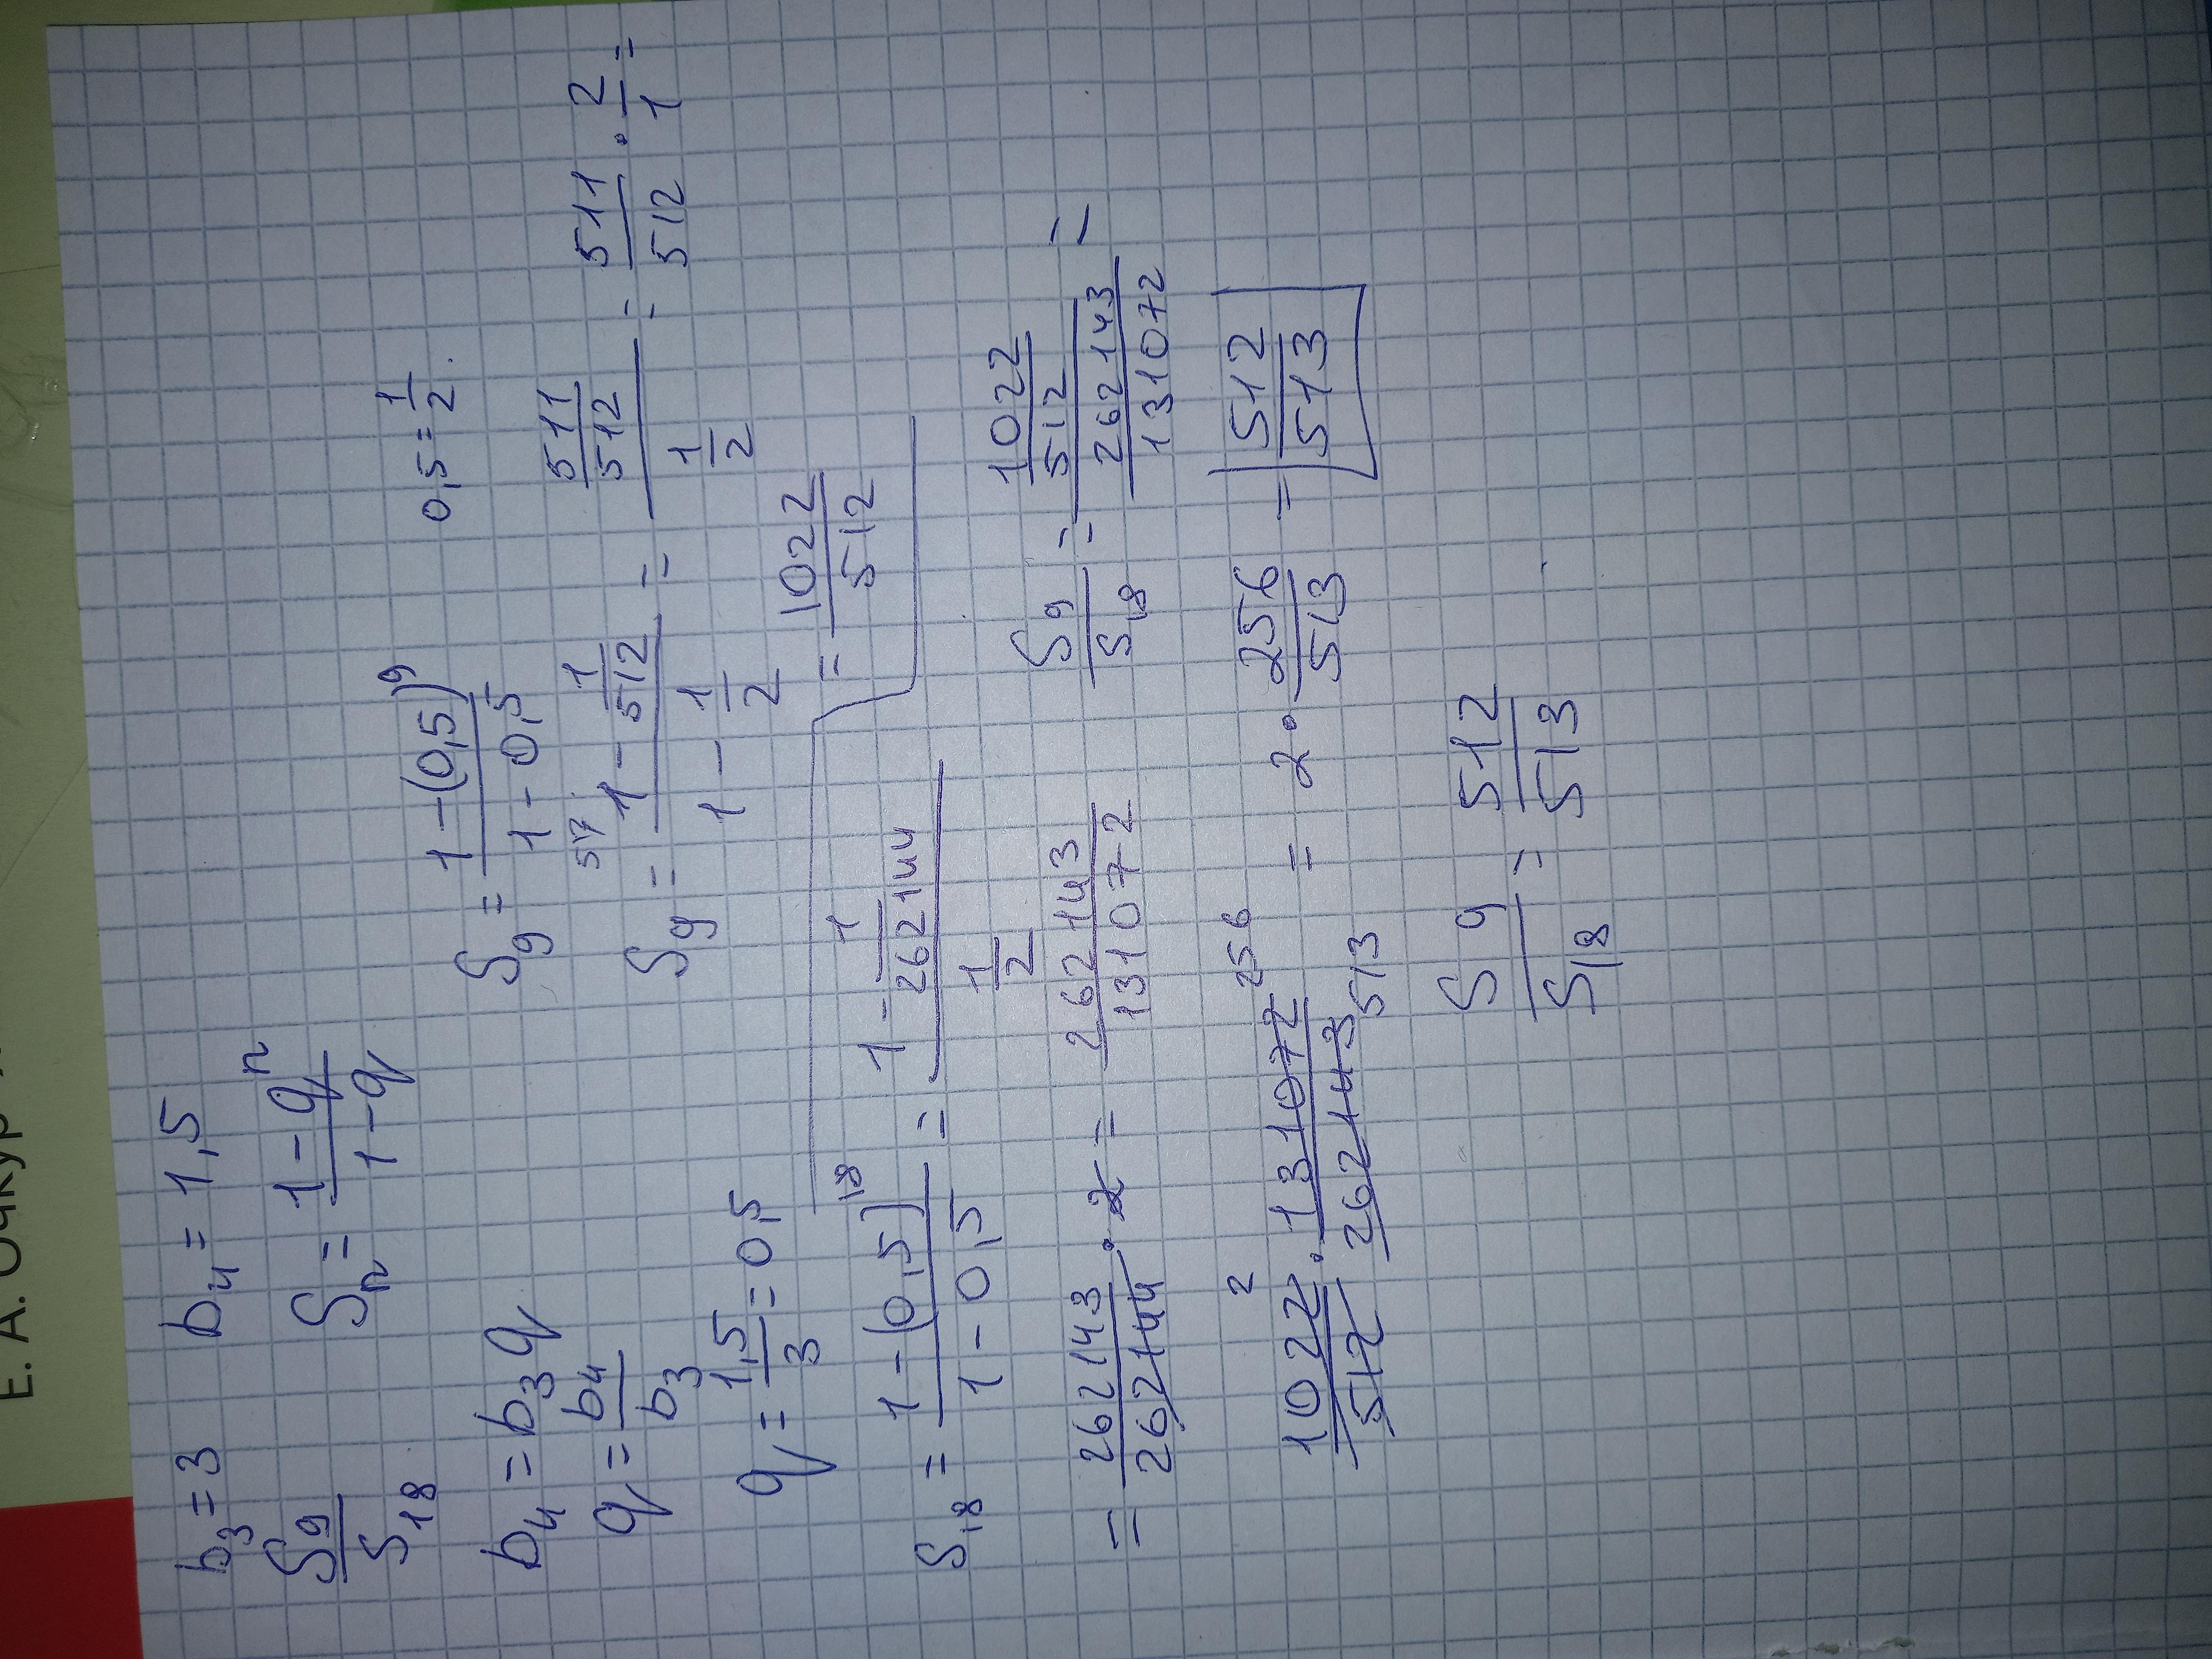 Е. А. Очкур
b₃ = 3   b₄ = 1,5
S₉/S₁₈   Sₙ = (1 - qⁿ)/(1 - q)
0,5 = 1/2.
b₄ = b₃q   S₉ = (1 - (0,5)⁹)/(1 - 0,5)
q = b₄/b₃
S₉ = (1 - 1/512)/(1 - 1/2) = (511/512)/(1/2) = 511/512 · 2/1 =
q = 1,5/3 = 0,5   = 1022/512
S₁₈ = (1 - (0,5)¹⁸)/(1 - 0,5) = (1 - 1/262144)/(1/2)
= 262143/262144 · 2 = 262143/131072   S₉/S₁₈ = (1022/512)/(262143/131072) =
2   256
1022/512 · 131072/262143 = 2 · 256/513 = 512/513
513
S₉/S₁₈ = 512/513